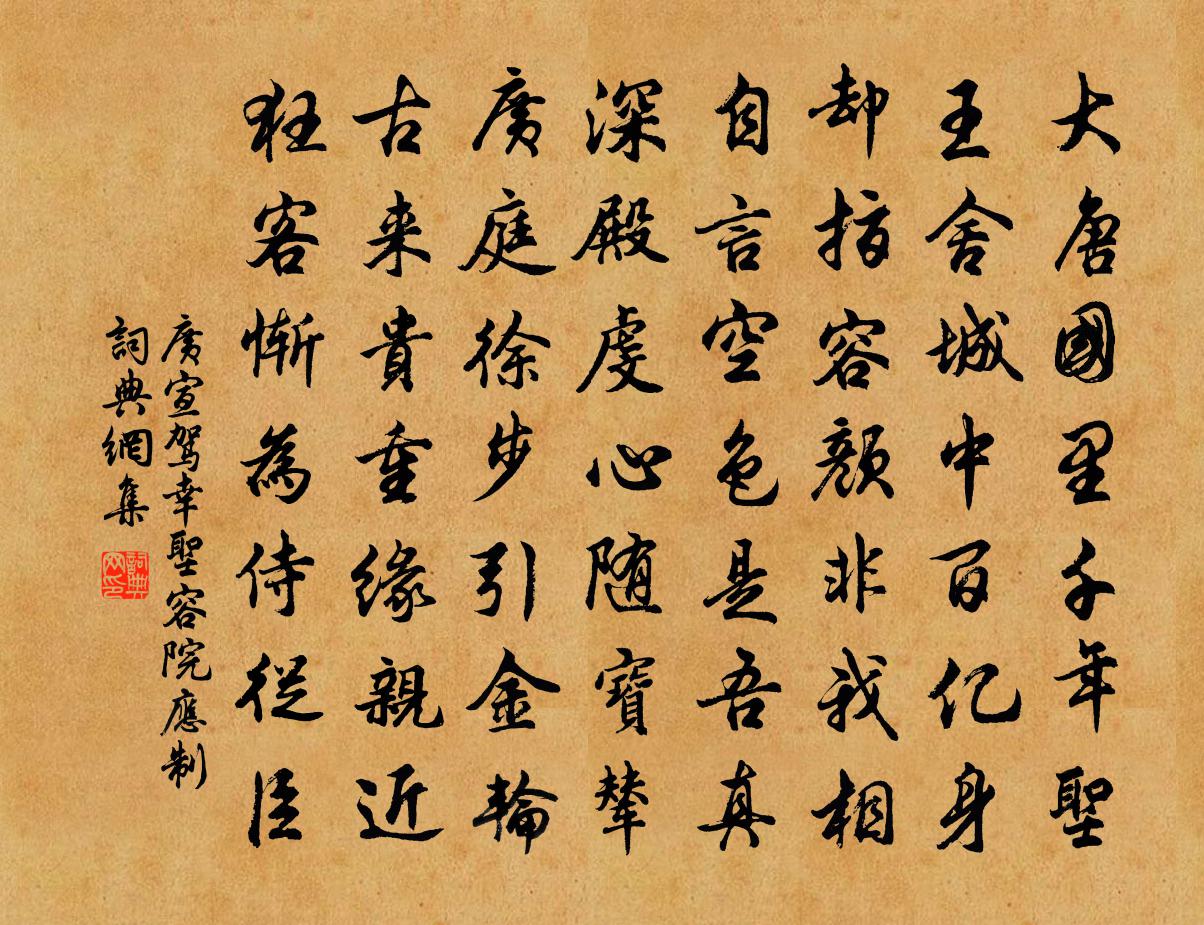 大唐國里千年聖
王舍城中百亿身
却指容顏非我相
自言空色是吾真
深殿虔心随寶輦
廣庭徐步引金輪
古来貴重緣親近
狂客慚為侍從臣
廣宣駕幸聖容院應制
詞典網集
詞典
网印